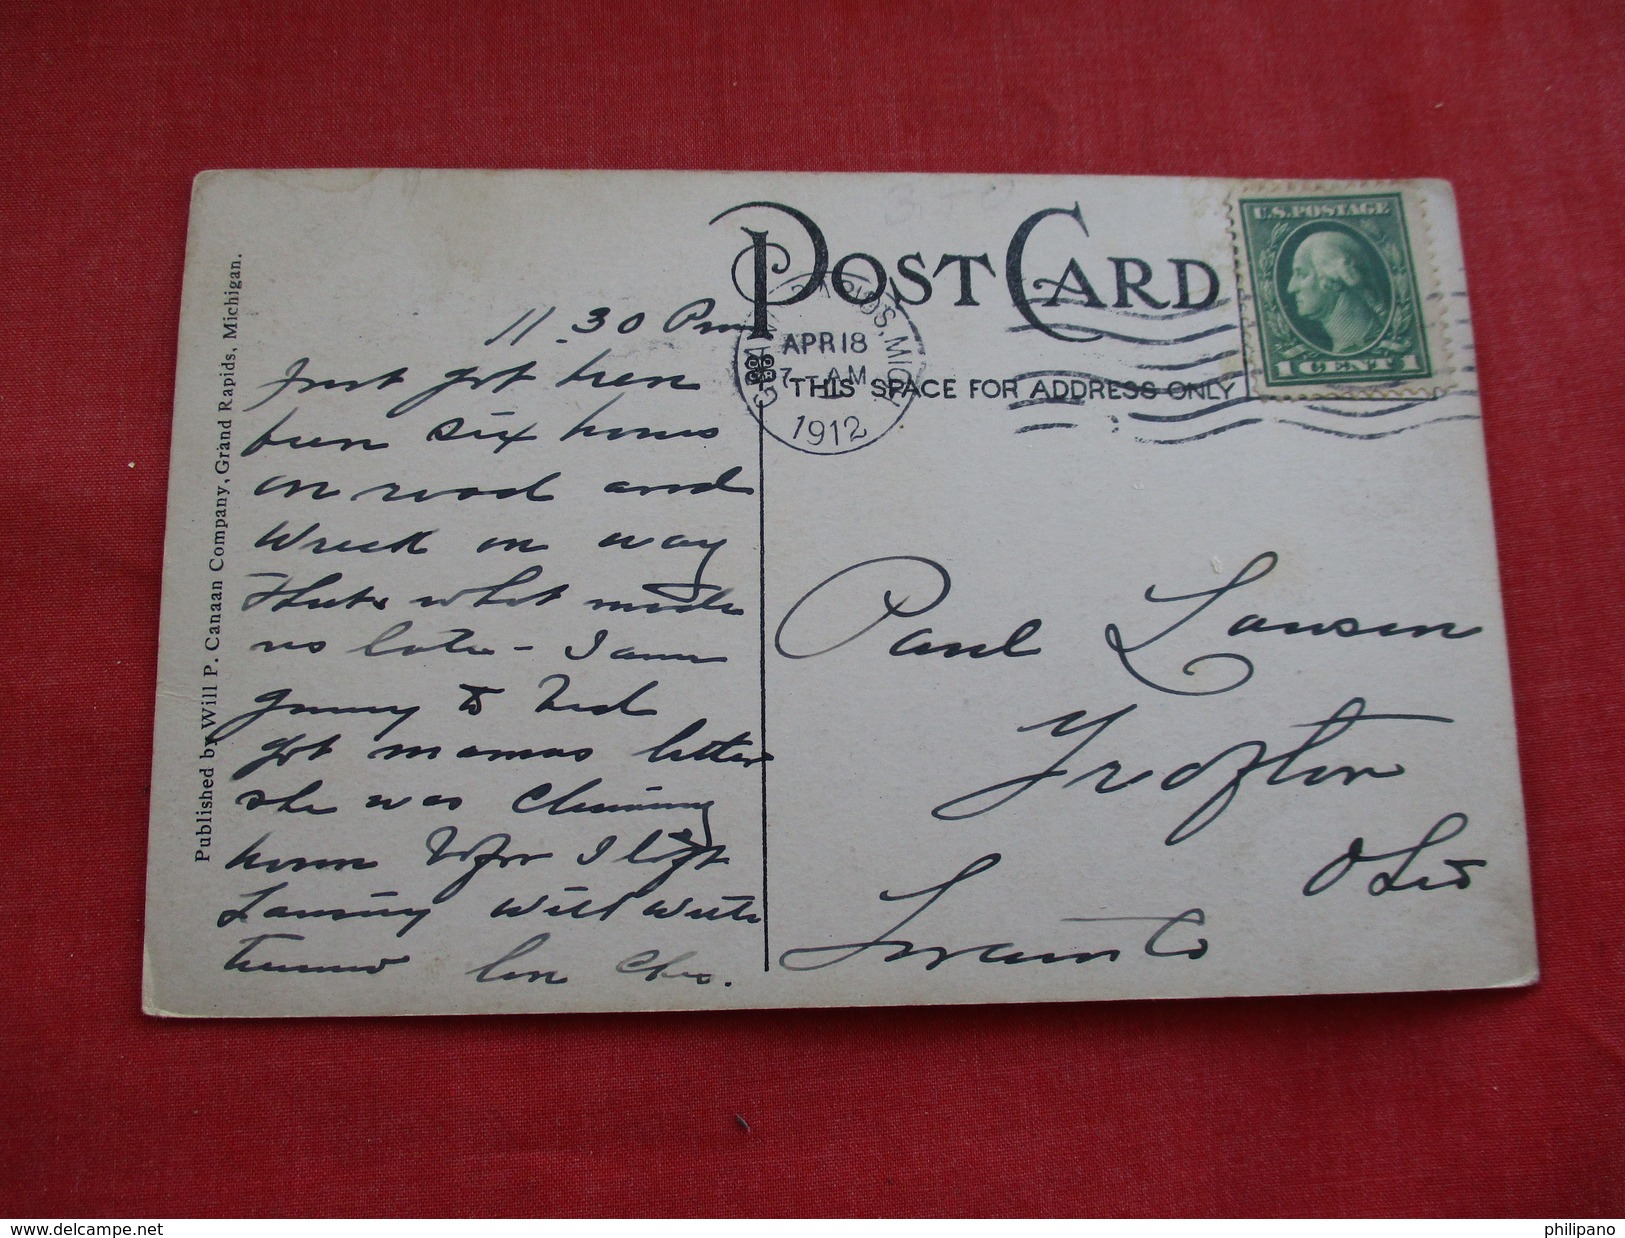 POST CARD
U.S. POSTAGE
1 CENT 1
GRAND RAPIDS, MICH.
APR 18
7 - AM
1912
THIS SPACE FOR ADDRESS ONLY
Published by Will P. Canaan Company, Grand Rapids, Michigan.
11.30 Pm
Just got here
been six hours
on road and
Wreck on way
Thats what made
us late - I am
going to bed
got mamas letter
she was
home I left
Lansing will write
Paul Lawson
Ohio
delcampe.net
philipano